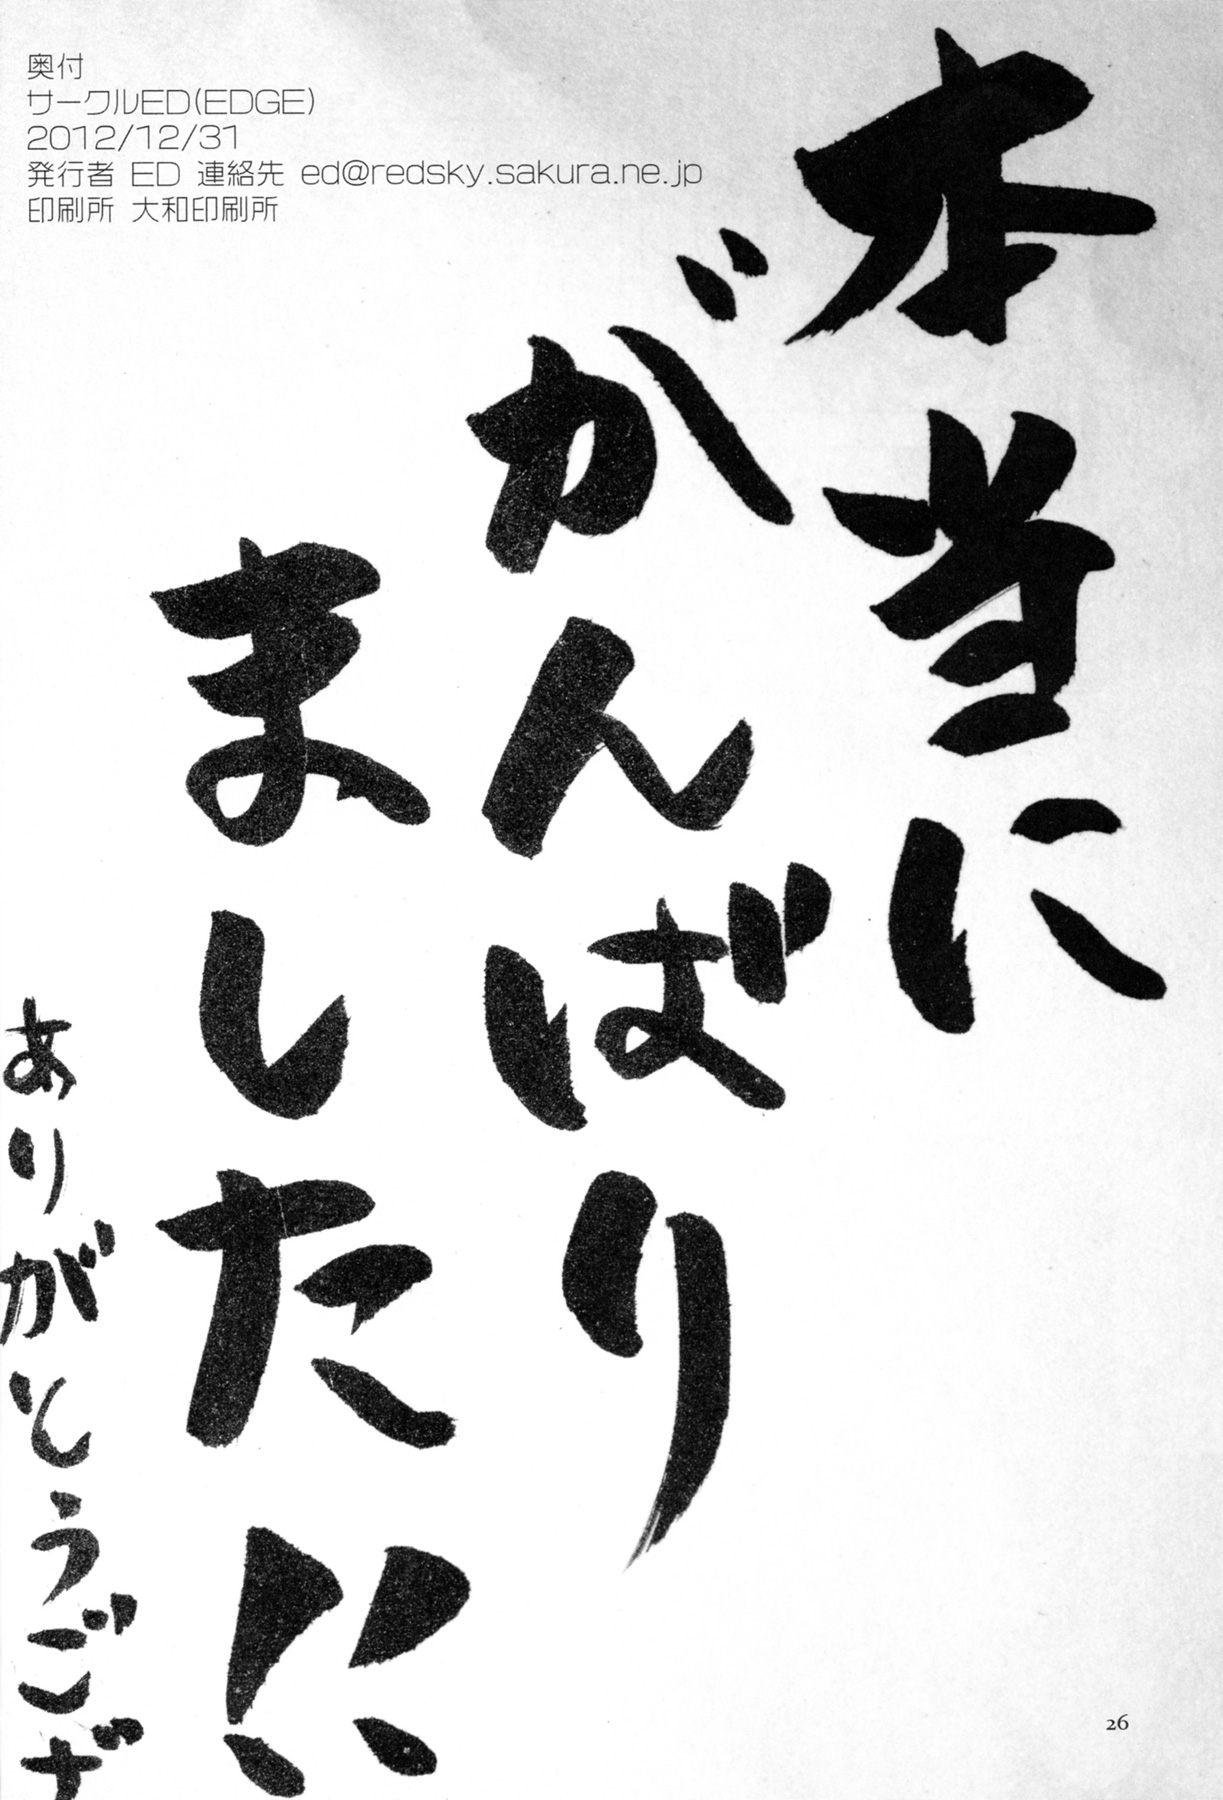 奥付
サークルED(EDGE)
2012/12/31
発行者 ED 連絡先 ed@redsky.sakura.ne.jp
印刷所 大和印刷所
本当に
がんばり
ました!!
ありがとうござ
26